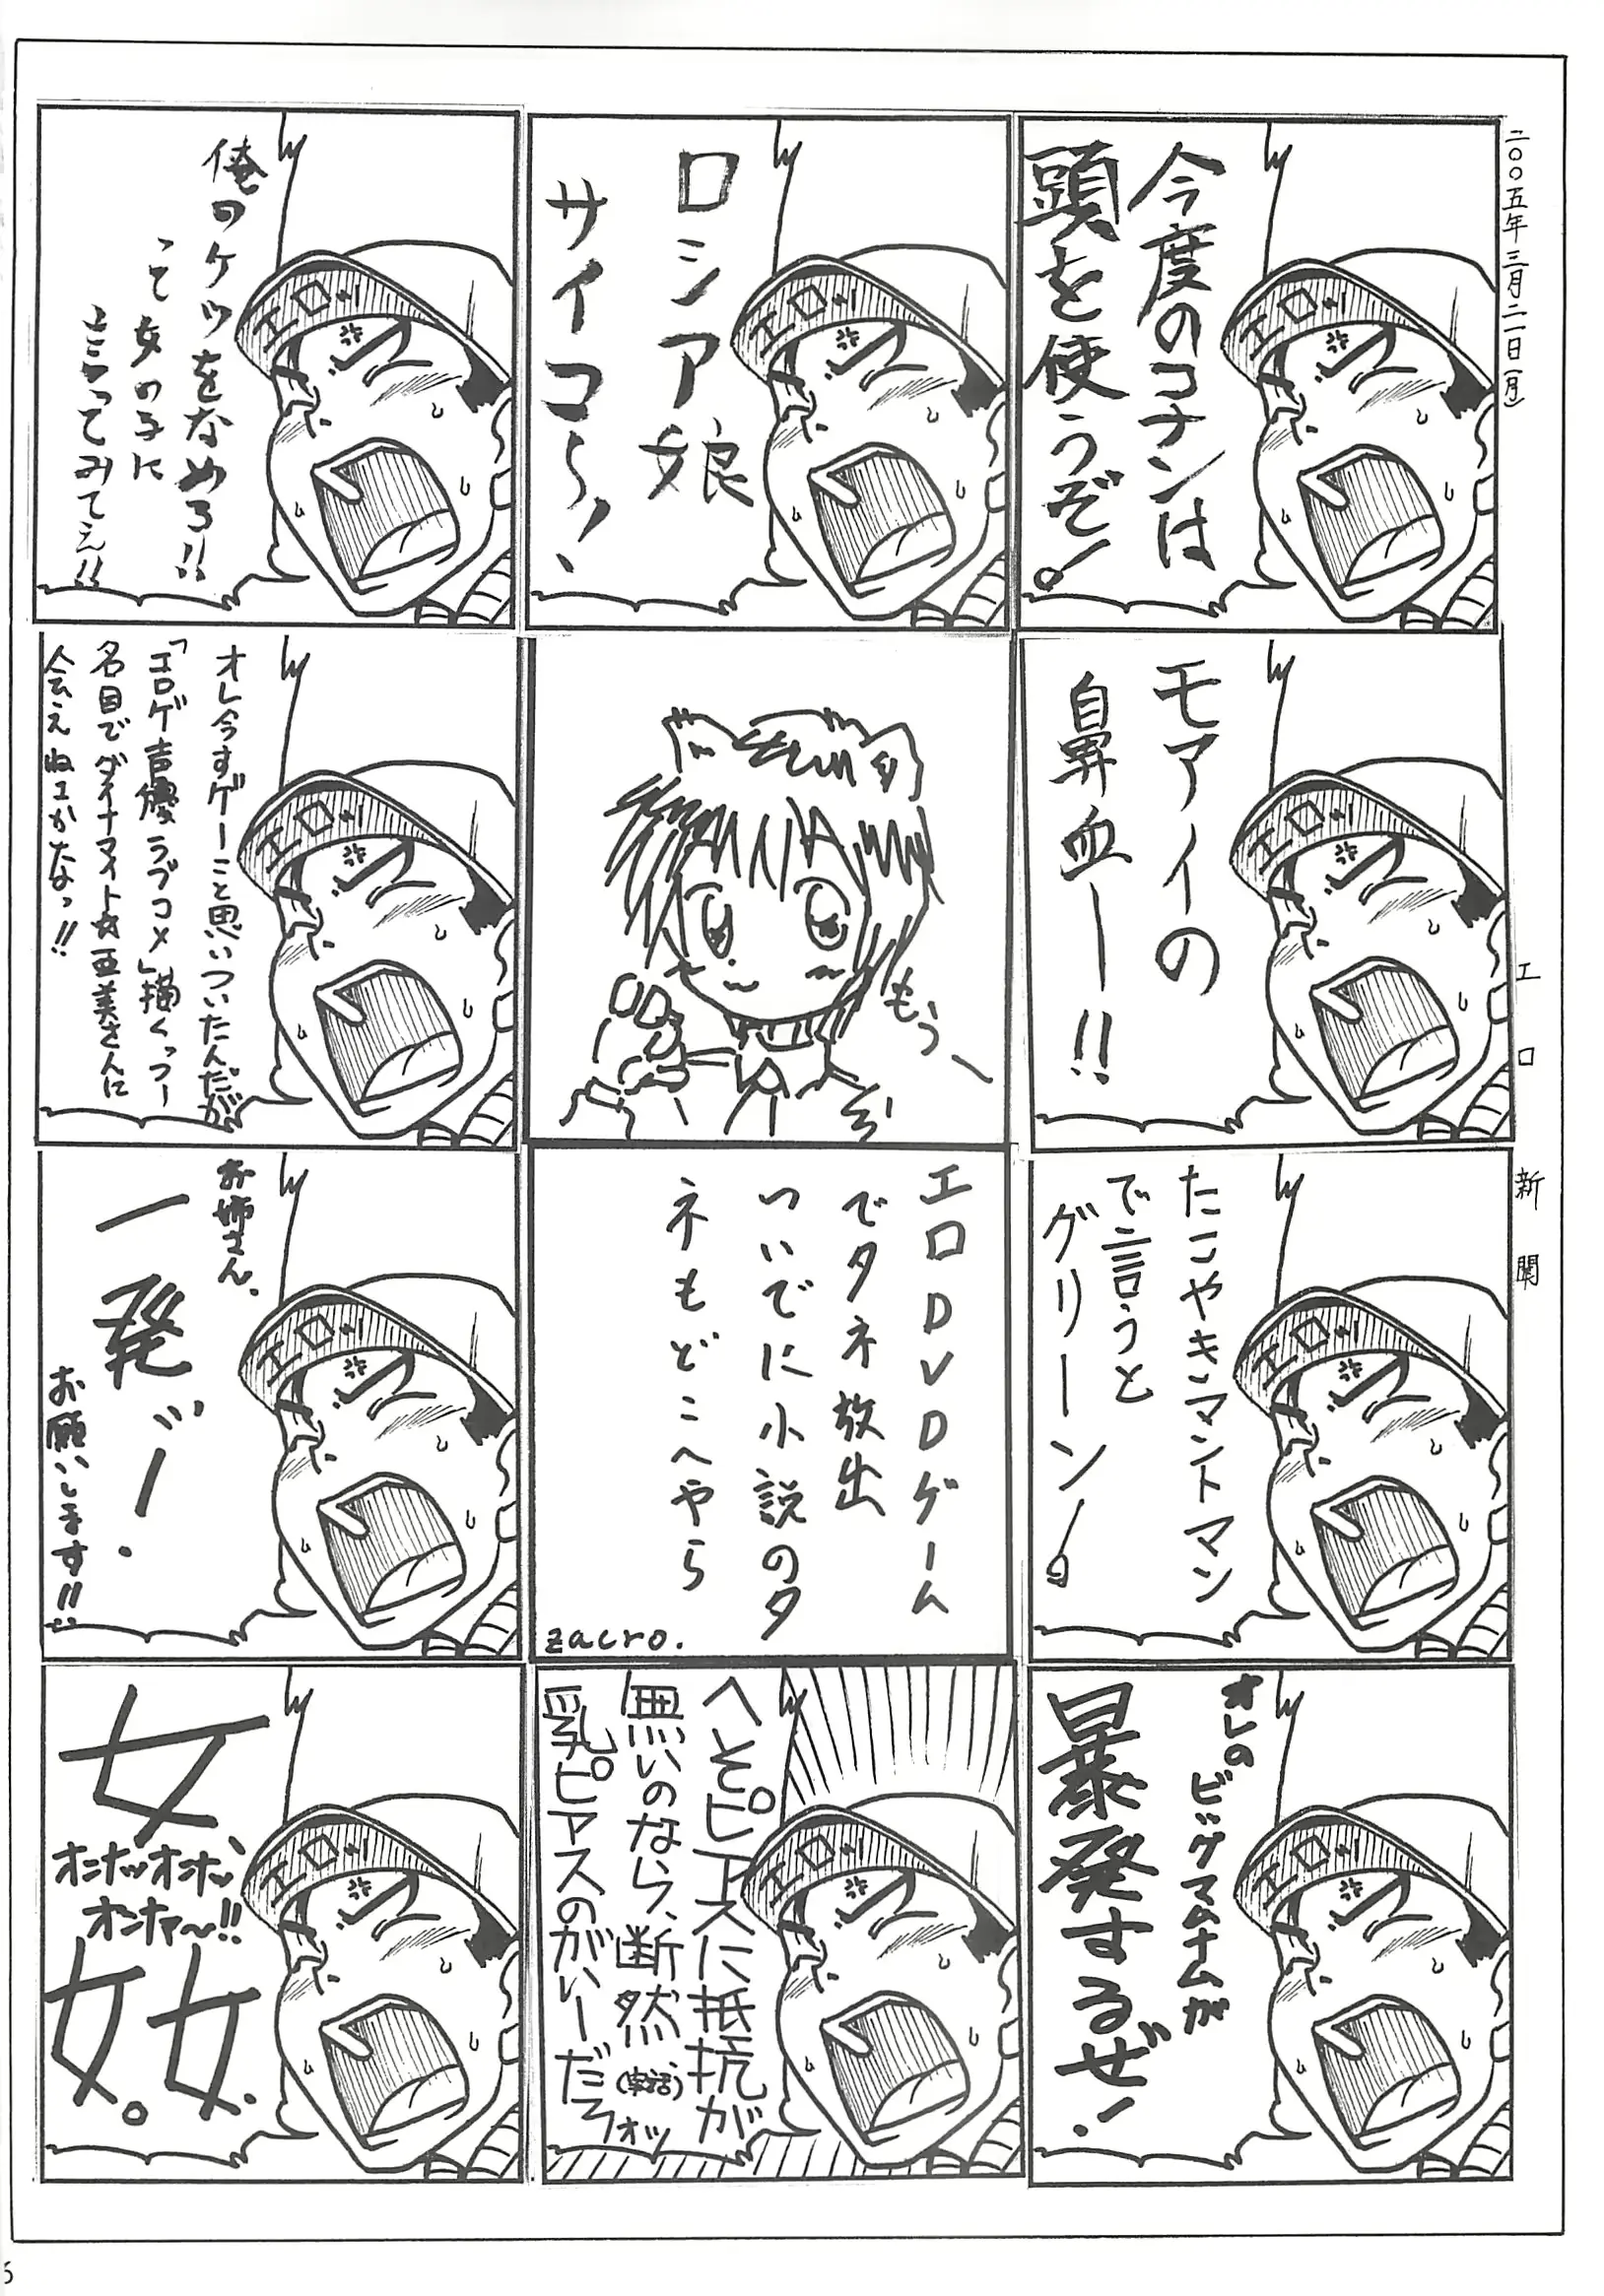 二〇〇五年三月二一日（月）
エロ新聞
今度のコナンは
頭を使うぞ!
エロッ
モアイの
鼻血ー!!
エロッ
たこやキンマントマン
で言うと
グリーン!
エロッ
オレの
ビッグマムナムが
暴発するぜ!
エロッ
ロシア娘
サイコ〜!
エロッ
もうー
エロDVDゲーム
でタネ放出
ついでに小説のタ
ネもどこへやら
zacro.
へそピアスに抵抗が
無いのなら、断然
(実話)
乳ピアスのがいーだろォッ
エロッ
俺のケツをなめろ!!
って女の子に
言ってみてぇ!!
エロッ
オレ今すげーこと思いついたんだが
「エロゲ声優ラブコメ」描くっつー
名目でダイナマイト女亜美さんに
会えねェかなっ!!
エロッ
お姉さん、
一発ッ!
お願いします!!
エロッ
女
オンナッオンナッ、
オンナァ〜!!
女、
女。
エロッ
6